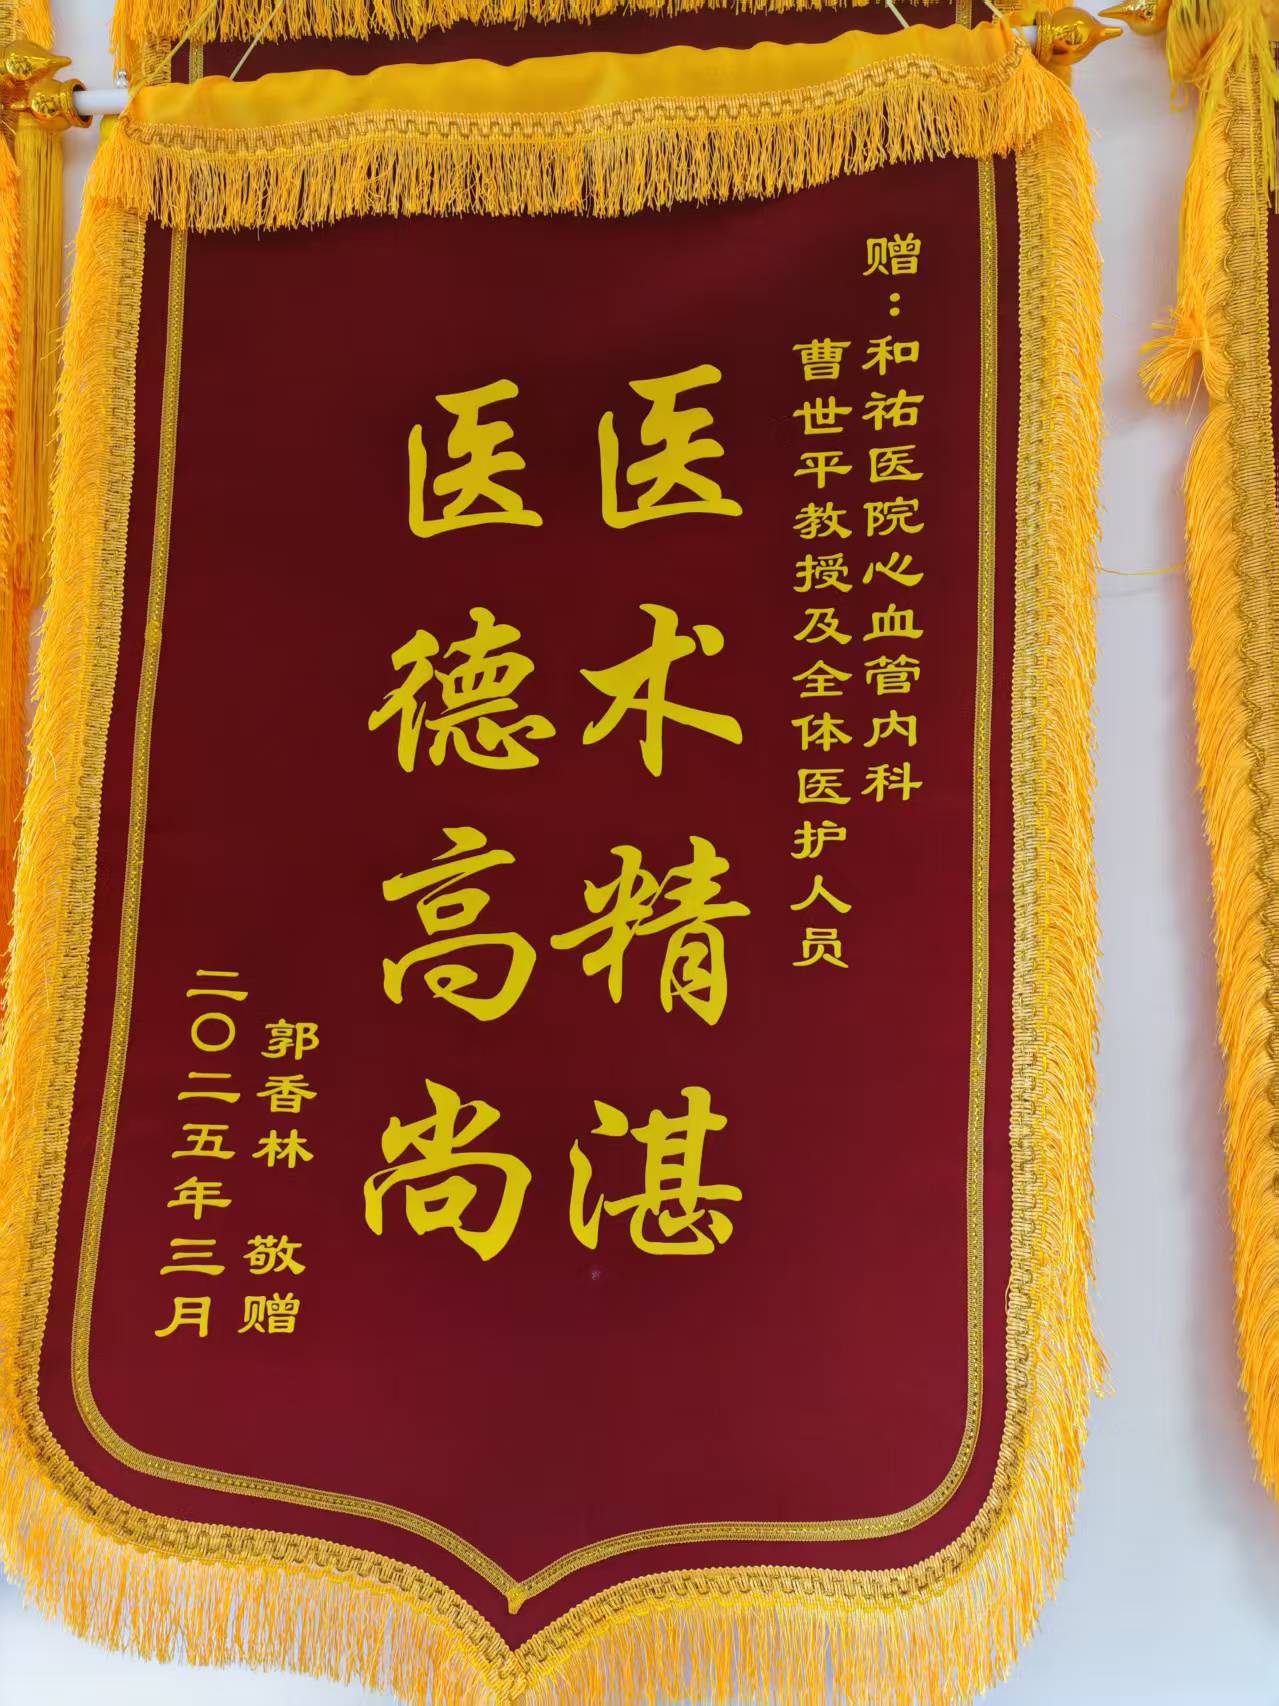 赠：和祐医院心血管内科
曹世平教授及全体医护人员
医术精湛
医德高尚
郭香林 敬赠
二〇二五年三月